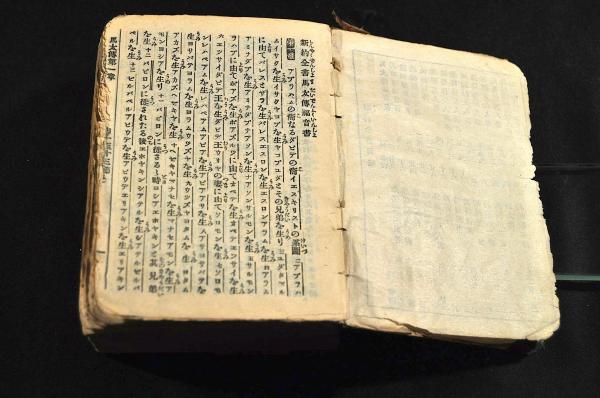 新約全書馬太傳福音書
第一章 アブラハムの裔なるダビデの裔イエスキリストの系圖 二アブラハ
ムイサクを生イサクヤコブを生ヤコブユダとその兄弟を生り 三ユダタマル
に由てパレスとザラを生パレスエスロンを生エスロンアラムを生 四アラム
アミナダブを生アミナダブナアソンを生ナアソンサルモンを生 五サルモン
ラハブに由てボアズを生ボアズルツに由てオベデを生オベデエツサイを生
六エツサイダビデ王を生ダビデ王ウリヤの妻に由てソロモンを生 七ソロモ
ンレハベアムを生レハベアムアビアを生アビアアサを生 八アサヨサパテを
生ヨサパテヨラムを生ヨラムウツズヤを生 九ウツズヤヨタムを生ヨタム
アカズを生アカズヘゼキヤを生 十ヘゼキヤマナセを生マナセアモンを生ア
モンヨシアを生り 十一バビロンに徙さるゝ時ヨシアエホヤキンとその兄弟
を生 十二バビロンに徙されたる後エホヤキンシアテルを生シアテルゼルバ
ベルを生 十三ゼルバベルアビウデを生アビウデエリアキンを生エリアキン
馬太傳第一章